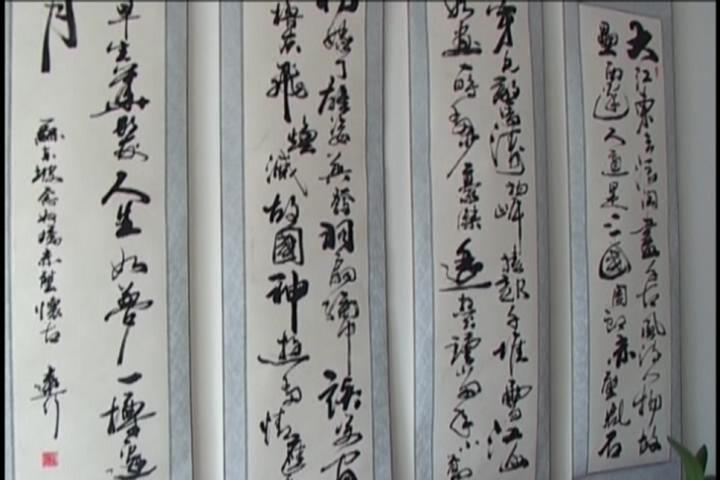 大江東去浪淘盡千古風流人物故
壘西邊人道是三國周郎赤壁亂石
穿空驚濤拍岸捲起千堆雪江山
如畫一時多少豪傑遙想公瑾當年小喬
初嫁了雄姿英發羽扇綸巾談笑間
櫓灰飛煙滅故國神遊多情應
早生華髮人生如夢一樽還
月
蘇東坡念奴嬌赤壁懷古